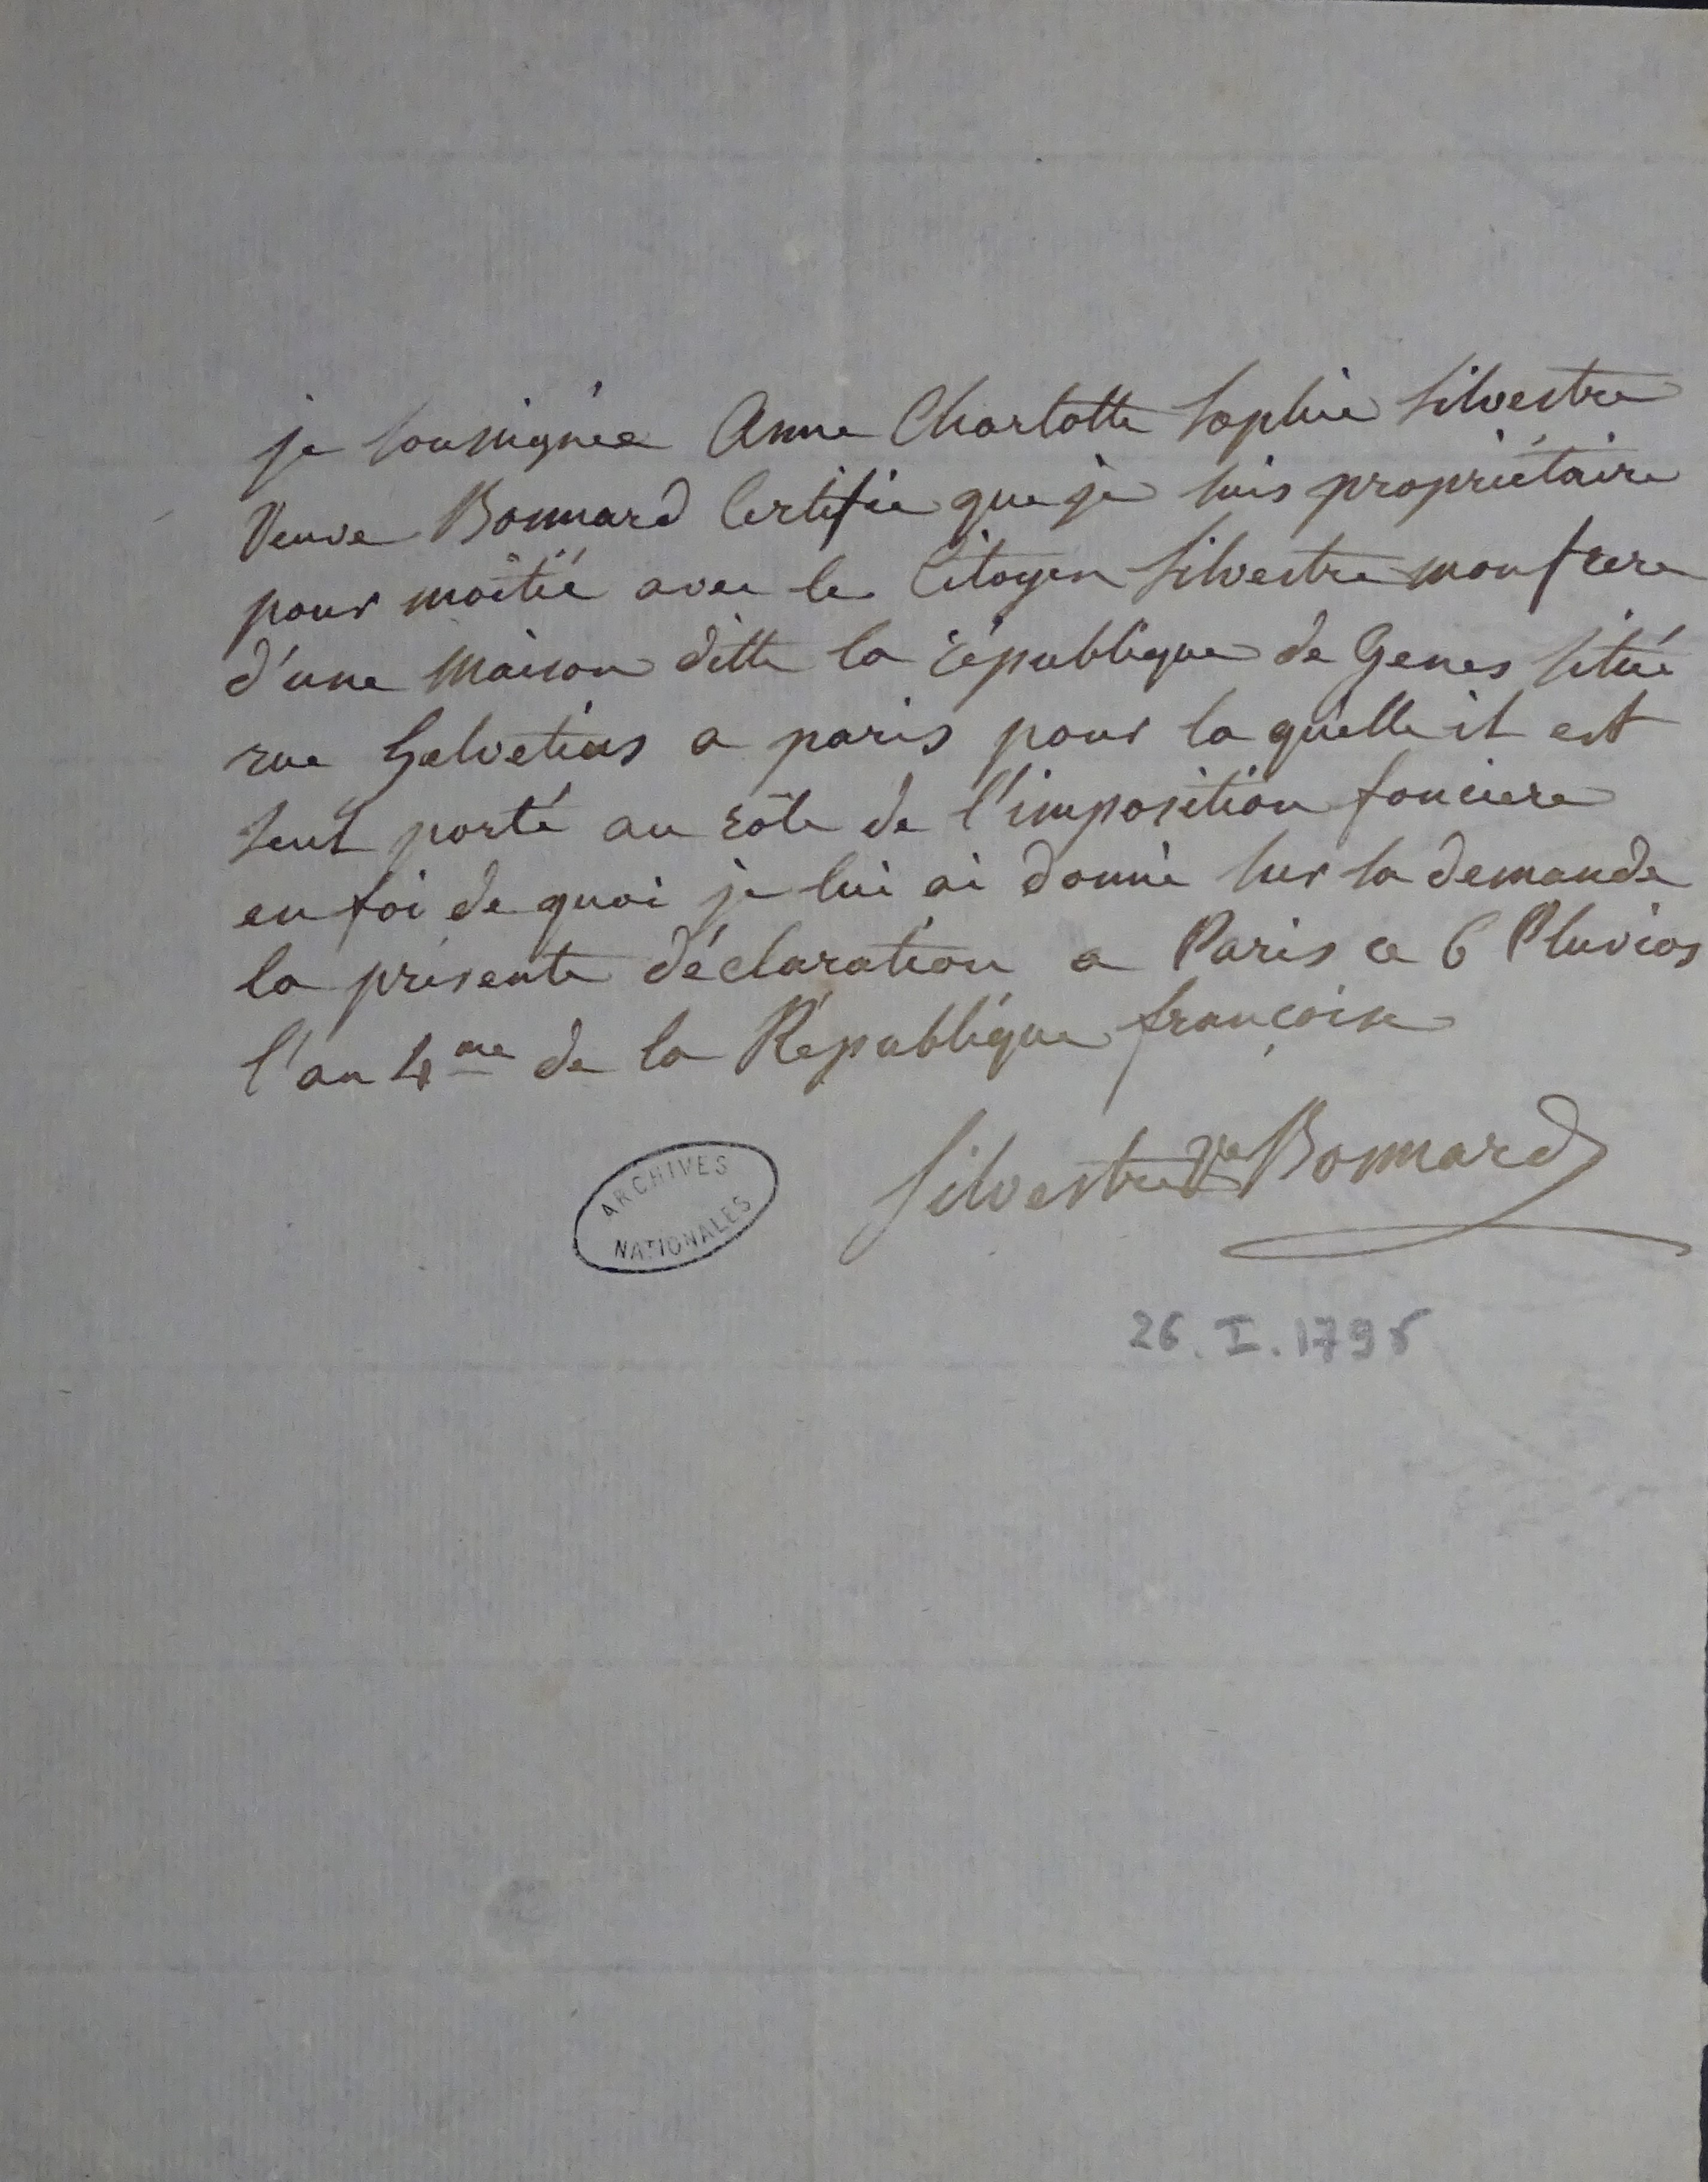 je soussignée Anne Charlotte Sophie Silvestre
Veuve Bonnard Certifie que je suis propriétaire
pour moitié avec le Citoyen Silvestre mon frere
d'une maison ditte la république de Genes situé
rue helvetius a paris pour la quelle il est
seul porté au rôle de l'imposition fonciere
en foi de quoi je lui ai donné sur sa demande
la présente déclaration a Paris ce 6 Pluvios
l'an 4me de la République françoise
Silvestre Ve Bonnard
ARCHIVES
NATIONALES
26. I. 1795